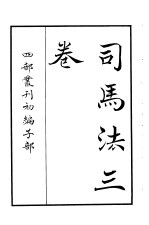 司馬法三
卷
四部叢刊初編子部